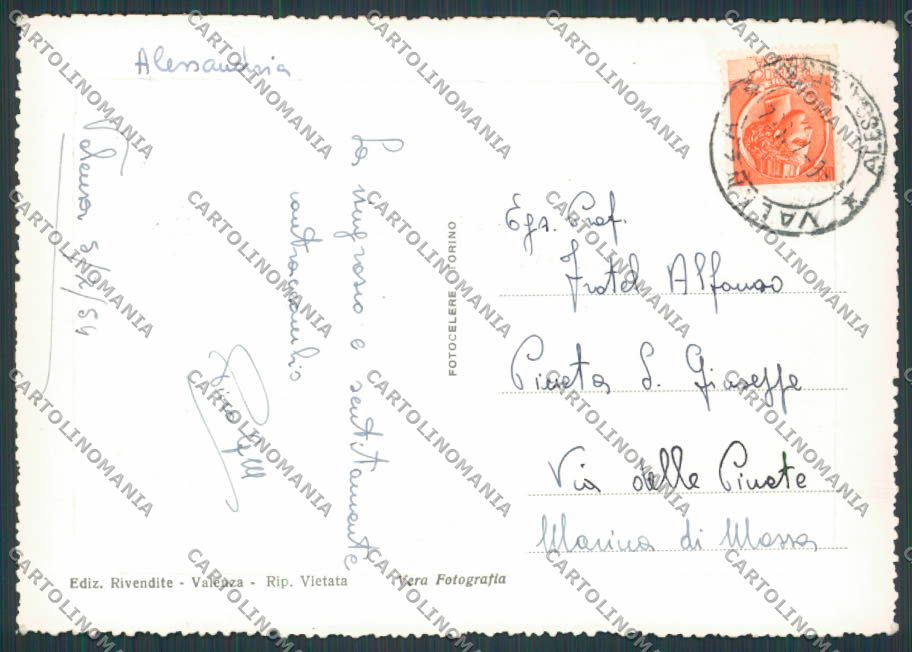 Alessandria
Valenza 3/2/54
La ringrazio e sentitamente
contraccambio
FOTOCELERE TORINO
Egr. Prof.
Fratel Alfonso
Pineta S. Giuseppe
Via delle Pinete
Marina di Massa
VALENZA
ALESSA
Ediz. Rivendite - Valenza - Rip. Vietata
Vera Fotografia
CARTOLINOMANIA